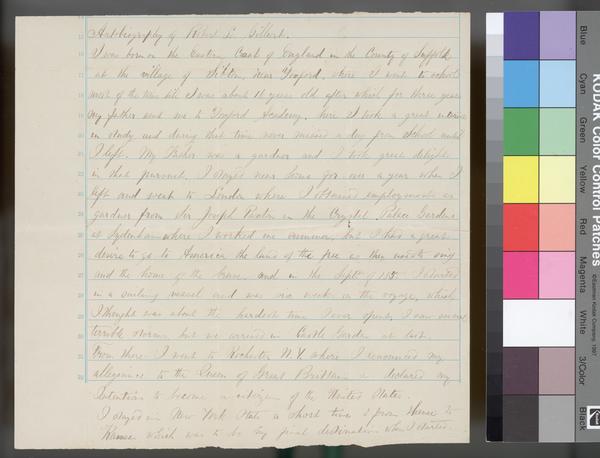 Autobiography of Robert L. Gilbert.
I was born on the Eastern Coast of England in the County of Suffolk
at the village of Sibton, near Yoxford, where I went to school
most of the time till I was about 11 years old after which for three years
my father sent me to Yoxford Academy, here I took a great interest
in study and during that time never missed a day from school until
I left. My Father was a gardner and I took great delight
in that pursuit. I stayed near home for over a year when I
left and went to London where I obtained employment as
gardner from Sir Joseph Paxton in the Crystal Palace Gardens
at Sydenham where I worked one summer, but I had a great
desire to go to America the land of the free as they used to say
and the home of the brave, and in the Sept of 185 I started
in a sailing vessel and was six weeks on the voyage, which
I thought was about the hardest time I ever spent, I saw several
terrible storms, but we arrived in Castle Garden at last.
From there I went to Rochester N.Y. where I renounced my
allegiance to the Queen of Great Brittian & declared my
Intentions to become a citizen of the United States.
I stayed in New York State a short time & from thence to
Kansas which was to be my final destination when I started.
12
15
16
17
18
19
20
21
22
23
24
25
26
27
28
29
30
31
32
KODAK Color Control Patches
©Eastman Kodak Company, 1997
Blue
Cyan
Green
Yellow
Red
Magenta
White
3/Color
Black
Kodak